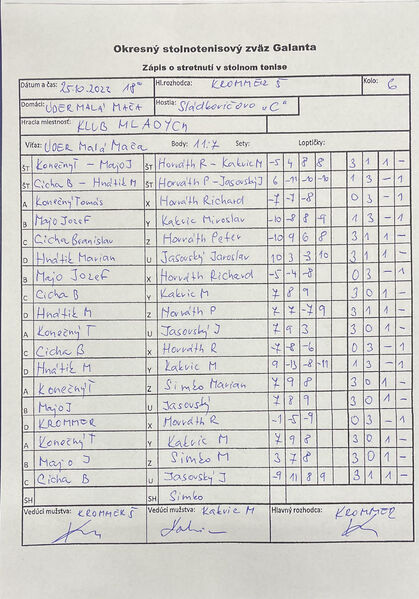 Okresný stolnotenisový zväz Galanta
Zápis o stretnutí v stolnom tenise
Dátum a čas: 25.10.2022 18⁰⁰ Hl.rozhodca: KROMMER Š Kolo: 6
Domáci: ÚDER MALÁ MAČA Hostia: Sládkovičovo "C"
Hracia miestnosť: KLUB MLADÝCH
Víťaz: ÚDER Malá Mača Body: 11:7 Sety: Loptičky:
ŠT Konečný T - Majo J ŠT Horváth R - Kakvic M -5 4 8 8 3 1 1 -
ŠT Cicha B - Hnátik M ŠT Horváth P - Jasovský J 6 -11 -10 -10 1 3 - 1
A Konečný Tomás X Horváth Richard -7 -7 -8 0 3 - 1
B Majo Jozef Y Kakvic Miroslav -10 -8 8 -9 1 3 - 1
C Cicha Branislav Z Horváth Peter -10 9 6 8 3 1 1 -
D Hnátik Marian U Jasovský Jaroslav 10 3 -3 10 3 1 1 -
B Majo Jozef X Horváth Richard -5 -4 -8 0 3 - 1
C Cicha B Y Kakvic M 7 8 9 3 0 1 -
D Hnátik M Z Horváth P 7 7 -7 9 3 1 1 -
A Konečný T U Jasovský J 7 9 3 3 0 1 -
C Cicha B X Horváth R -7 -8 -6 0 3 - 1
D Hnátik M Y Kakvic M 9 -13 -8 -11 1 3 - 1
A Konečný T Z Simko Marian 7 9 8 3 0 1 -
B Majo J U Jasovský 7 8 9 3 0 1 -
D KROMMER X Horváth R -1 -5 -9 0 3 - 1
A Konečný T Y Kakvic M 7 9 8 3 0 1 -
B Majo J Z Simko M 3 7 8 3 0 1 -
C Cicha B U Jasovský J -9 11 8 9 3 1 1 -
SH SH Simko
Vedúci mužstva: KROMMER Š Vedúci mužstva: Kakvic M Hlavný rozhodca: KROMMER